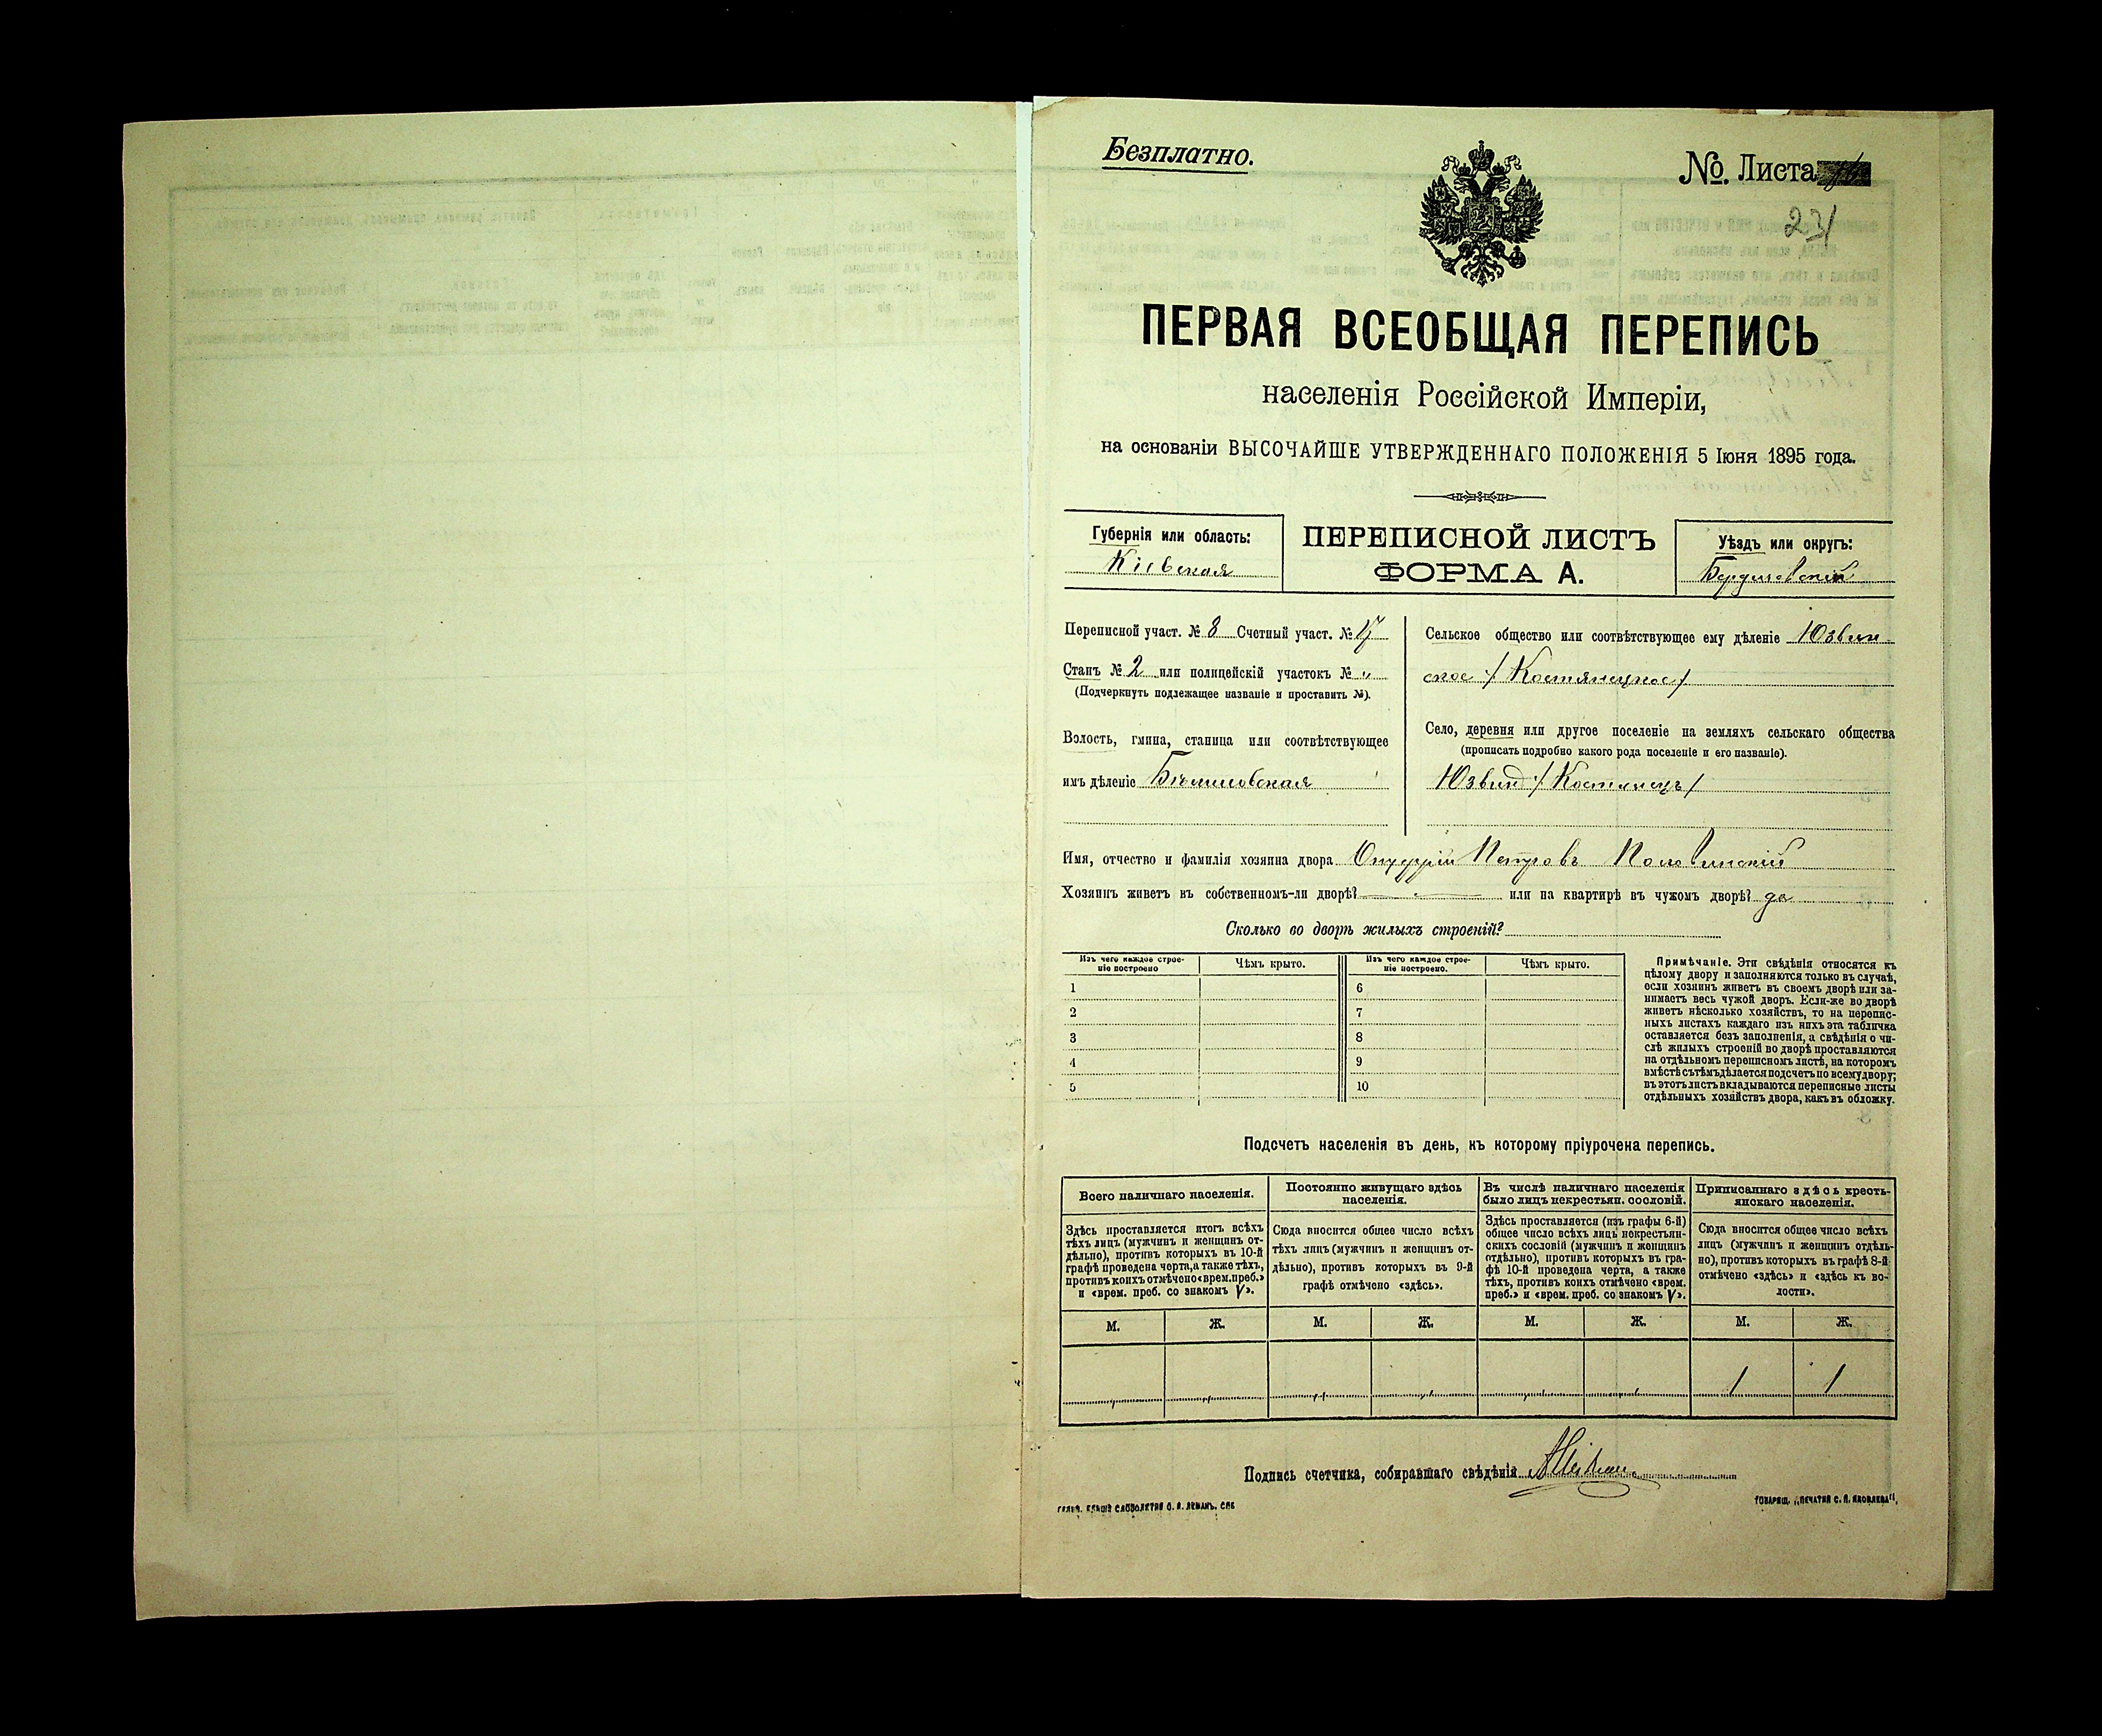 Безплатно.
№ Листа
231
ПЕРВАЯ ВСЕОБЩАЯ ПЕРЕПИСЬ
населенія Россійской Имперіи,
на основаніи ВЫСОЧАЙШЕ УТВЕРЖДЕННАГО ПОЛОЖЕНІЯ 5 Іюня 1895 года.
Губернія или область:
Кіевская
ПЕРЕПИСНОЙ ЛИСТЪ
ФОРМА А.
Уѣздъ или округъ:
Бердичевскій
Переписной участ. № 8 Счетный участ. №
Станъ № 2 или полицейскій участокъ № "
(Подчеркнуть подлежащее названіе и проставить №).
Волость, гмина, станица или соотвѣтствующее
имъ дѣленіе
Сельское общество или соотвѣтствующее ему дѣленіе Юзвин-
ское /Костянецкое/
Село, деревня или другое поселеніе на земляхъ сельскаго общества
(прописать подробно какого рода поселеніе и его названіе).
Юзвин /Костянецъ/
Имя, отчество и фамилія хозяина двора Онуфрій Петровъ
Хозяинъ живетъ въ собственномъ-ли дворѣ? или на квартирѣ въ чужомъ дворѣ? да
Сколько во дворѣ жилыхъ строеній?
Изъ чего каждое строе-
ніе построено
Чѣмъ крыто.
Изъ чего каждое строе-
ніе построено.
Чѣмъ крыто.
1 6
2 7
3 8
4 9
5 10
Примѣчаніе. Эти свѣдѣнія относятся къ
цѣлому двору и заполняются только въ случаѣ,
если хозяинъ живетъ въ своемъ дворѣ или за-
нимаетъ весь чужой дворъ. Если-же во дворѣ
живетъ нѣсколько хозяйствъ, то на перепис-
ныхъ листахъ каждаго изъ нихъ эта табличка
оставляется безъ заполненія, а свѣдѣнія о чи-
слѣ жилыхъ строеній во дворѣ проставляются
на отдѣльномъ переписномъ листѣ, на которомъ
вмѣстѣ съ тѣмъ дѣлается подсчетъ по всему двору;
въ этотъ листъ вкладываются переписные листы
отдѣльныхъ хозяйствъ двора, какъ въ обложку.
Подсчетъ населенія въ день, къ которому пріурочена перепись.
Всего наличнаго населенія.
Здѣсь проставляется итогъ всѣхъ
тѣхъ лицъ (мужчинъ и женщинъ от-
дѣльно), противъ которыхъ въ 10-й
графѣ проведена черта, а также тѣхъ,
противъ коихъ отмѣчено «врем. преб.»
и «врем. преб. со знакомъ V».
Постоянно живущаго здѣсь
населенія.
Сюда вносится общее число всѣхъ
тѣхъ лицъ (мужчинъ и женщинъ от-
дѣльно), противъ которыхъ въ 9-й
графѣ отмѣчено «здѣсь».
Въ числѣ наличнаго населенія
было лицъ некрестьян. сословій.
Здѣсь проставляется (изъ графы 6-й)
общее число всѣхъ лицъ некрестьян-
скихъ сословій (мужчинъ и женщинъ
отдѣльно), противъ которыхъ въ гра-
фѣ 10-й проведена черта, а также
тѣхъ, противъ коихъ отмѣчено «врем.
преб.» и «врем. преб. со знакомъ V».
Приписаннаго здѣсь кресть-
янскаго населенія.
Сюда вносится общее число всѣхъ
лицъ (мужчинъ и женщинъ отдѣль-
но), противъ которыхъ въ графѣ 8-й
отмѣчено «здѣсь» и «здѣсь къ во-
лости».
М. Ж. М. Ж. М. Ж. М. Ж.
1 1
Подпись счетчика, собиравшаго свѣдѣнія
ТОВАРИЩ. „ПЕЧАТНЯ С. П. ЯКОВЛЕВА",